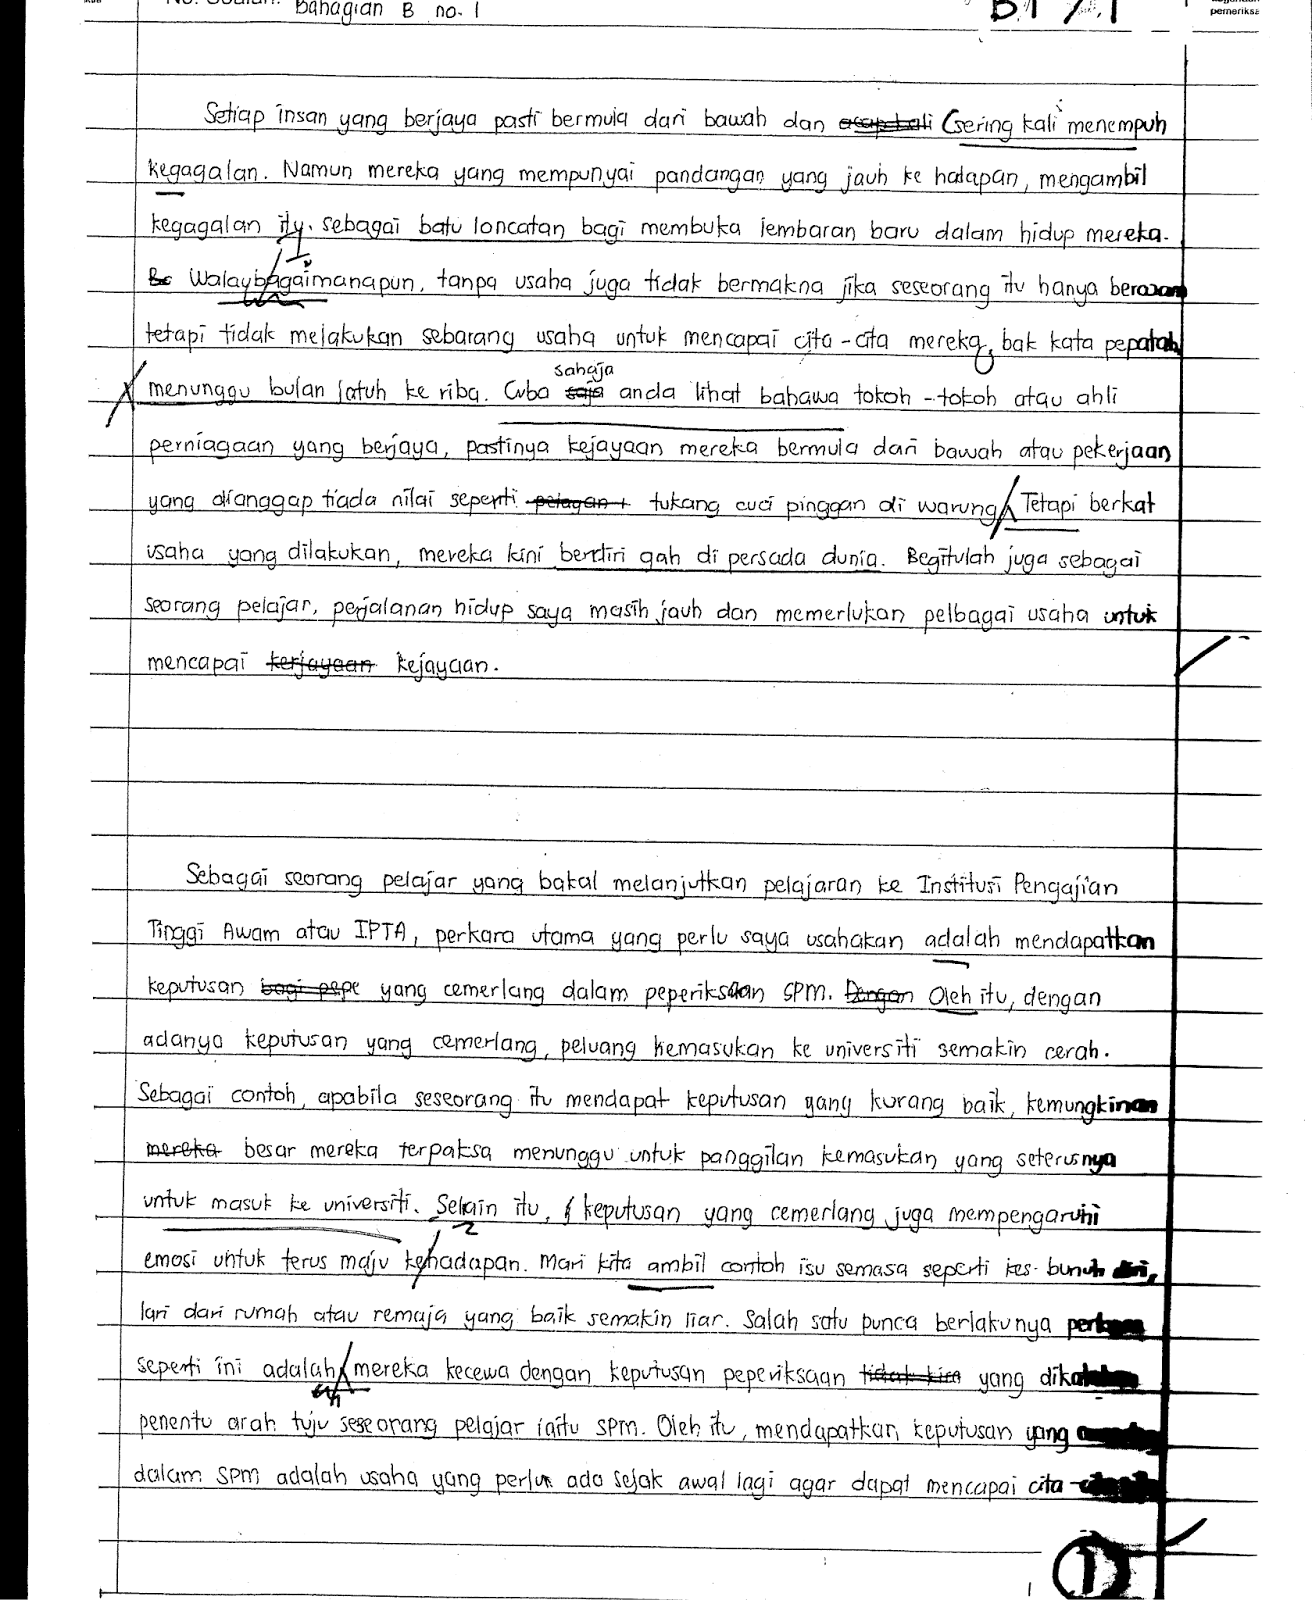 No. Soalan: Bahagian B no. 1
B1/1
pemeriksa
Setiap insan yang berjaya pasti bermula dari bawah dan acap kali sering kali menempuh
kegagalan. Namun mereka yang mempunyai pandangan yang jauh ke hadapan, mengambil
kegagalan itu. sebagai batu loncatan bagi membuka lembaran baru dalam hidup mereka.
Be Walaubagaimanapun, tanpa usaha juga tidak bermakna jika seseorang itu hanya berangan
tetapi tidak melakukan sebarang usaha untuk mencapai cita-cita mereka, bak kata pepatah
sahaja
menunggu bulan jatuh ke riba. Cuba saja anda lihat bahawa tokoh-tokoh atau ahli
perniagaan yang berjaya, pastinya kejayaan mereka bermula dari bawah atau pekerjaan
yang dianggap tiada nilai seperti tukang cuci pinggan di warung Tetapi berkat
usaha yang dilakukan, mereka kini berdiri gah di persada dunia. Begitulah juga sebagai
seorang pelajar, perjalanan hidup saya masih jauh dan memerlukan pelbagai usaha untuk
mencapai kerjayaan kejayaan.
Sebagai seorang pelajar yang bakal melanjutkan pelajaran ke Institusi Pengajian
Tinggi Awam atau IPTA, perkara utama yang perlu saya usahakan adalah mendapatkan
keputusan bagi pepe yang cemerlang dalam peperiksaan SPM. Dengan Oleh itu, dengan
adanya keputusan yang cemerlang, peluang kemasukan ke universiti semakin cerah.
Sebagai contoh, apabila seseorang itu mendapat keputusan yang kurang baik, kemungkinan
mereka besar mereka terpaksa menunggu untuk panggilan kemasukan yang seterusnya
untuk masuk ke universiti. Selain itu, keputusan yang cemerlang juga mempengaruhi
emosi untuk terus maju kehadapan. Mari kita ambil contoh isu semasa seperti kes bunuh diri,
lari dari rumah atau remaja yang baik semakin liar. Salah satu punca berlakunya
seperti ini adalah mereka kecewa dengan keputusan peperiksaan tidak kira yang
penentu arah tuju seseorang pelajar iaitu SPM. Oleh itu, mendapatkan keputusan yang
dalam SPM adalah usaha yang perlu ada sejak awal lagi agar dapat mencapai cita-
1